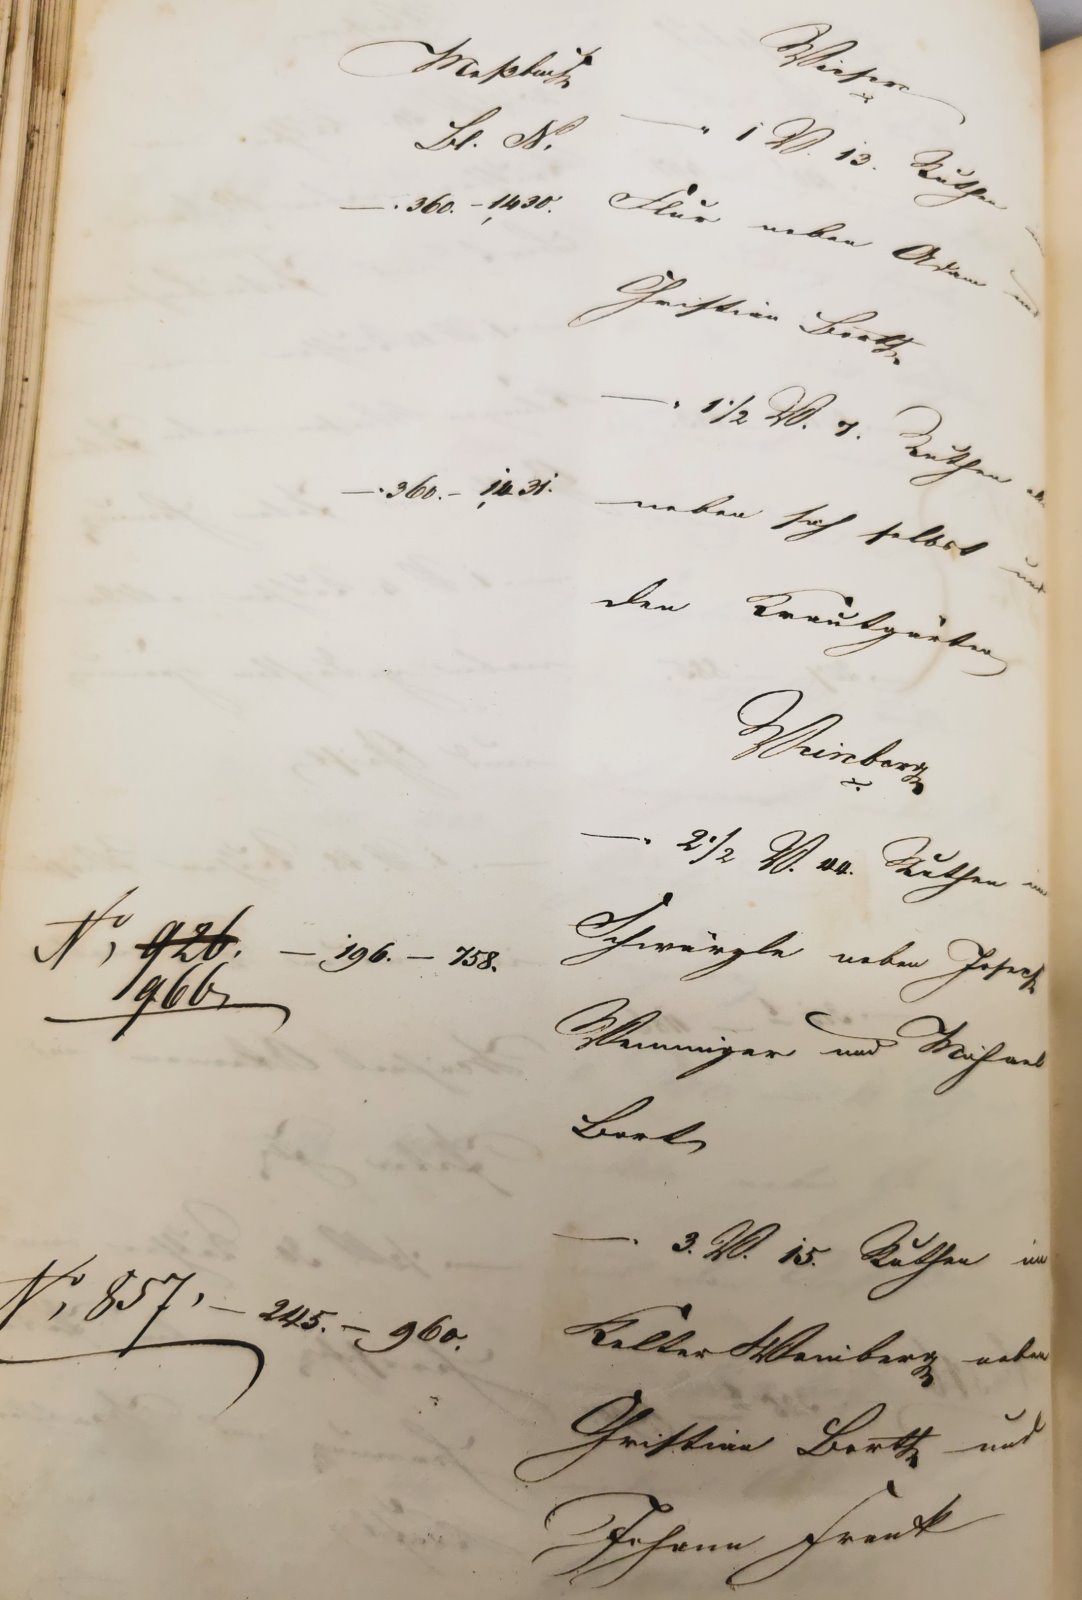 Meßbuch
Wiesen
Bl. N.
— " 1 V. 13. Ruthen
— . 360. — 1430.
Flur neben Adam und
Christian Bortt
— . 1 1/2 V. 7. Ruthen
— . 360. — 1431.
neben sich selbst und
den Krautgärten
Weinberg
— . 2 1/2 V. 44. Ruthen im
No, 926. — 196. — 758.
966
Schwärzle neben Joseph
Wenninger und Michael
Bort
— . 3. V. 15. Ruthen im
No, 857, — 245. — 960.
Kelter Weinberg neben
Christian Bortt und
Johann Frank